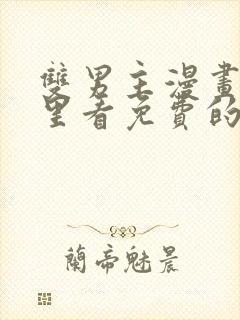 雙男主漫畫
里看免費的
蘭帝魅晨